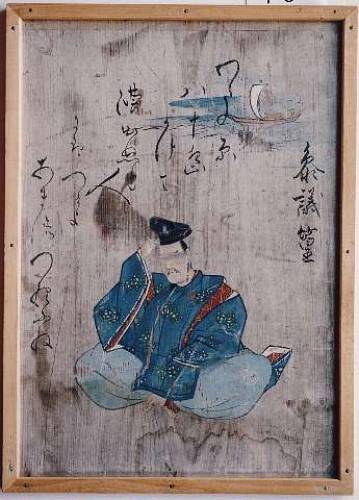 参議篁
わたの原
八十島
かけて
漕出ぬと
人
には
つけよ
あまのつり舟